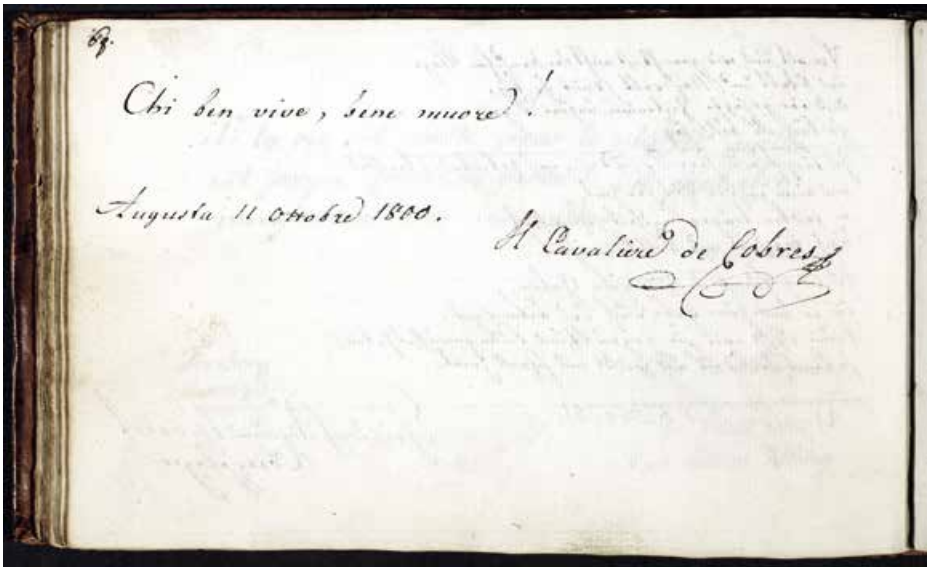 68.
Chi ben vive, bene muore!
Augusta 11 Ottobre 1800.
Il Cavaliere de Cobres